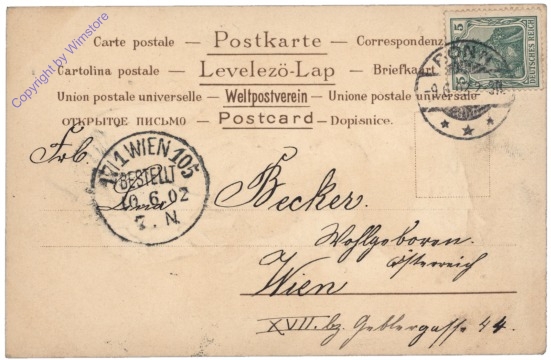 Copyright by Wimstore
Carte postale — Postkarte — Correspondenz
Cartolina postale — Levelező-Lap — Briefkaart
Union postale universelle — Weltpostverein — Unione postale universale
ОТКРЫТОЕ ПИСЬМО — Postcard — Dopisnice.
5 5
DEUTSCHES REICH
BONN
17/1 WIEN 105
BESTELLT
10.6.02
7. N.
Frl.
Becker.
Wohlgeboren.
Wien
Österreich
XVII. bz. Geblergasse 44.